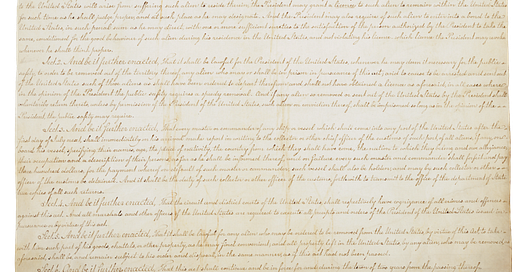 to the United States will arise from suffering such alien to reside therein, the President may grant a license to such alien to remain within the United States
for such time as he shall judge proper, and at such place as he may designate. And the President may also require of such alien to enter into a bond to the
United States, in such penal sum as he may direct, with one or more sufficient sureties to the satisfaction of the person authorized by the President to take the
same, conditioned for the good behavior of such alien during his residence in the United States, and not violating his license, which license the President may revoke
whenever he shall think proper.
Sec. 2. And be it further enacted, That it shall be lawful for the President of the United States, whenever he may deem it necessary for the public
safety, to order to be removed out of the territory thereof, any alien who may or shall be in prison in pursuance of this act; and to cause to be arrested and sent out
of the United States such of those aliens as shall have been ordered to depart therefrom and shall not have obtained a license as aforesaid, in all cases where,
in the opinion of the President, the public safety requires a speedy removal. And if any alien so removed or sent out of the United States by the President shall
voluntarily return thereto, unless by permission of the President of the United States, such alien on conviction thereof, shall be imprisoned so long as, in the opinion of the
President, the public safety may require.
Sec. 3. And be it further enacted, That every master or commander of any ship or vessel which shall come into any port of the United States after the
first day of July next, shall immediately on his arrival make report in writing to the collector or other chief officer of the customs of such port, of all aliens, if any, on
board his vessel, specifying their names, age, the place of nativity, the country from which they shall have come, the nation to which they belong and owe allegiance,
their occupation and a description of their persons, as far as he shall be informed thereof, and on failure, every such master and commander shall forfeit and pay
three hundred dollars, for the payment whereof on default of such master or commander, such vessel shall also be holden, and may by such collector or other
officer of the customs be detained. And it shall be the duty of such collector or other officer of the customs, forthwith to transmit to the office of the department of State
true copies of all such returns.
Sec. 4. And be it further enacted, That the circuit and district courts of the United States, shall respectively have cognizance of all crimes and offences
against this act. And all marshals and other officers of the United States are required to execute all precepts and orders of the President of the United States issued in
pursuance or by virtue of this act.
Sec. 5. And be it further enacted, That it shall be lawful for any alien who may be ordered to be removed from the United States, by virtue of this act, to take
with him such part of his goods, chattels, or other property, as he may find convenient; and all property left in the United States by any alien, who may be removed, as
aforesaid, shall be, and remain subject to his order and disposal, in the same manner as if this act had not been passed.
Sec. 6. And be it further enacted, That this act shall continue and be in force for and during the term of two years from the passing thereof.